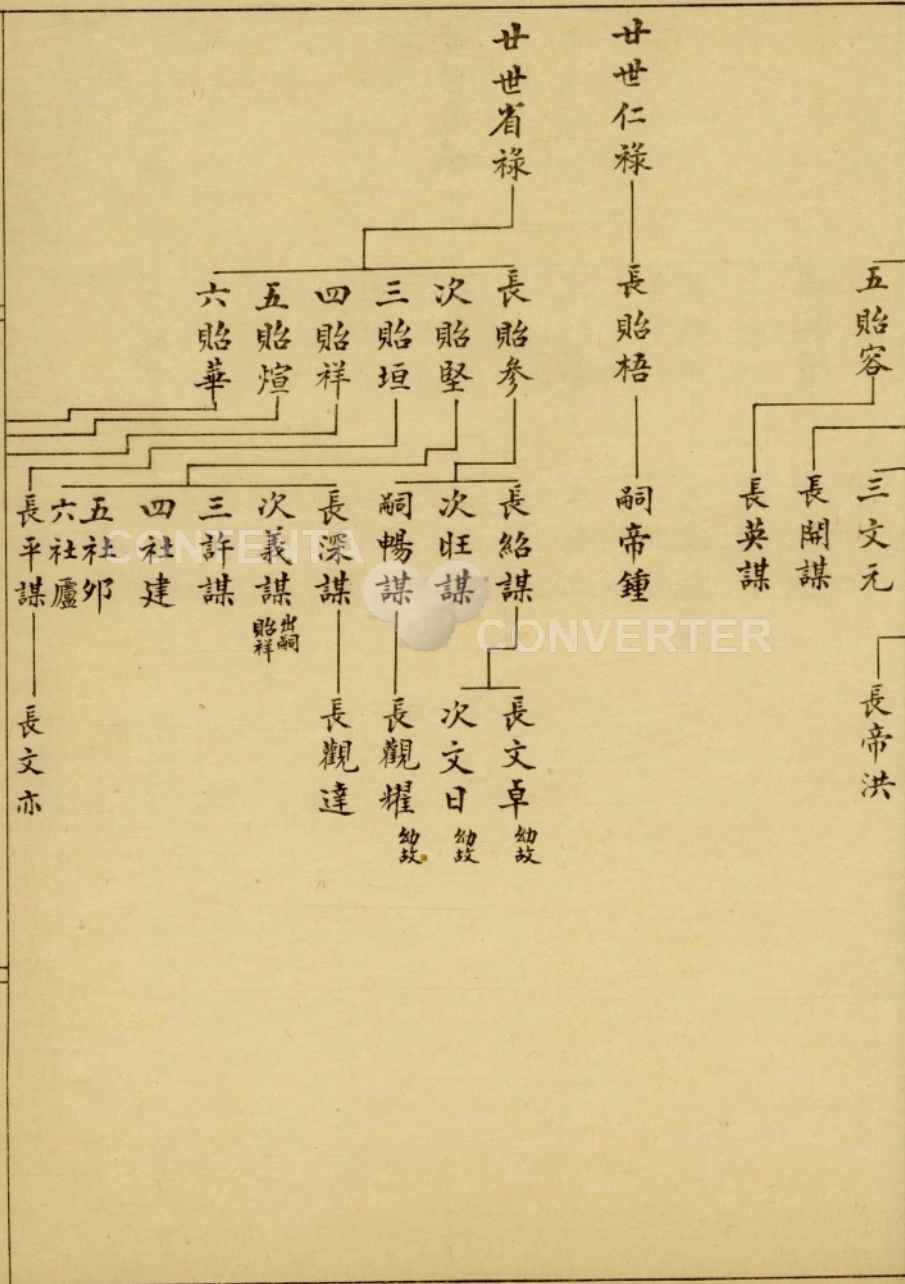 五貽容
三文元
長開謀
長英謀
長帝洪
廿世仁祿
長貽梧
嗣帝鍾
廿世省祿
長貽參
次貽堅
三貽垣
四貽祥
五貽煊
六貽華
長紹謀
次旺謀
嗣暢謀
長深謀
次義謀 出嗣貽祥
三許謀
四社建
五社邜
六社廬
長平謀
長文卓 幼故
次文日 幼故
長觀耀 幼故
長觀達
長文亦
CONVENTA
CONVERTER